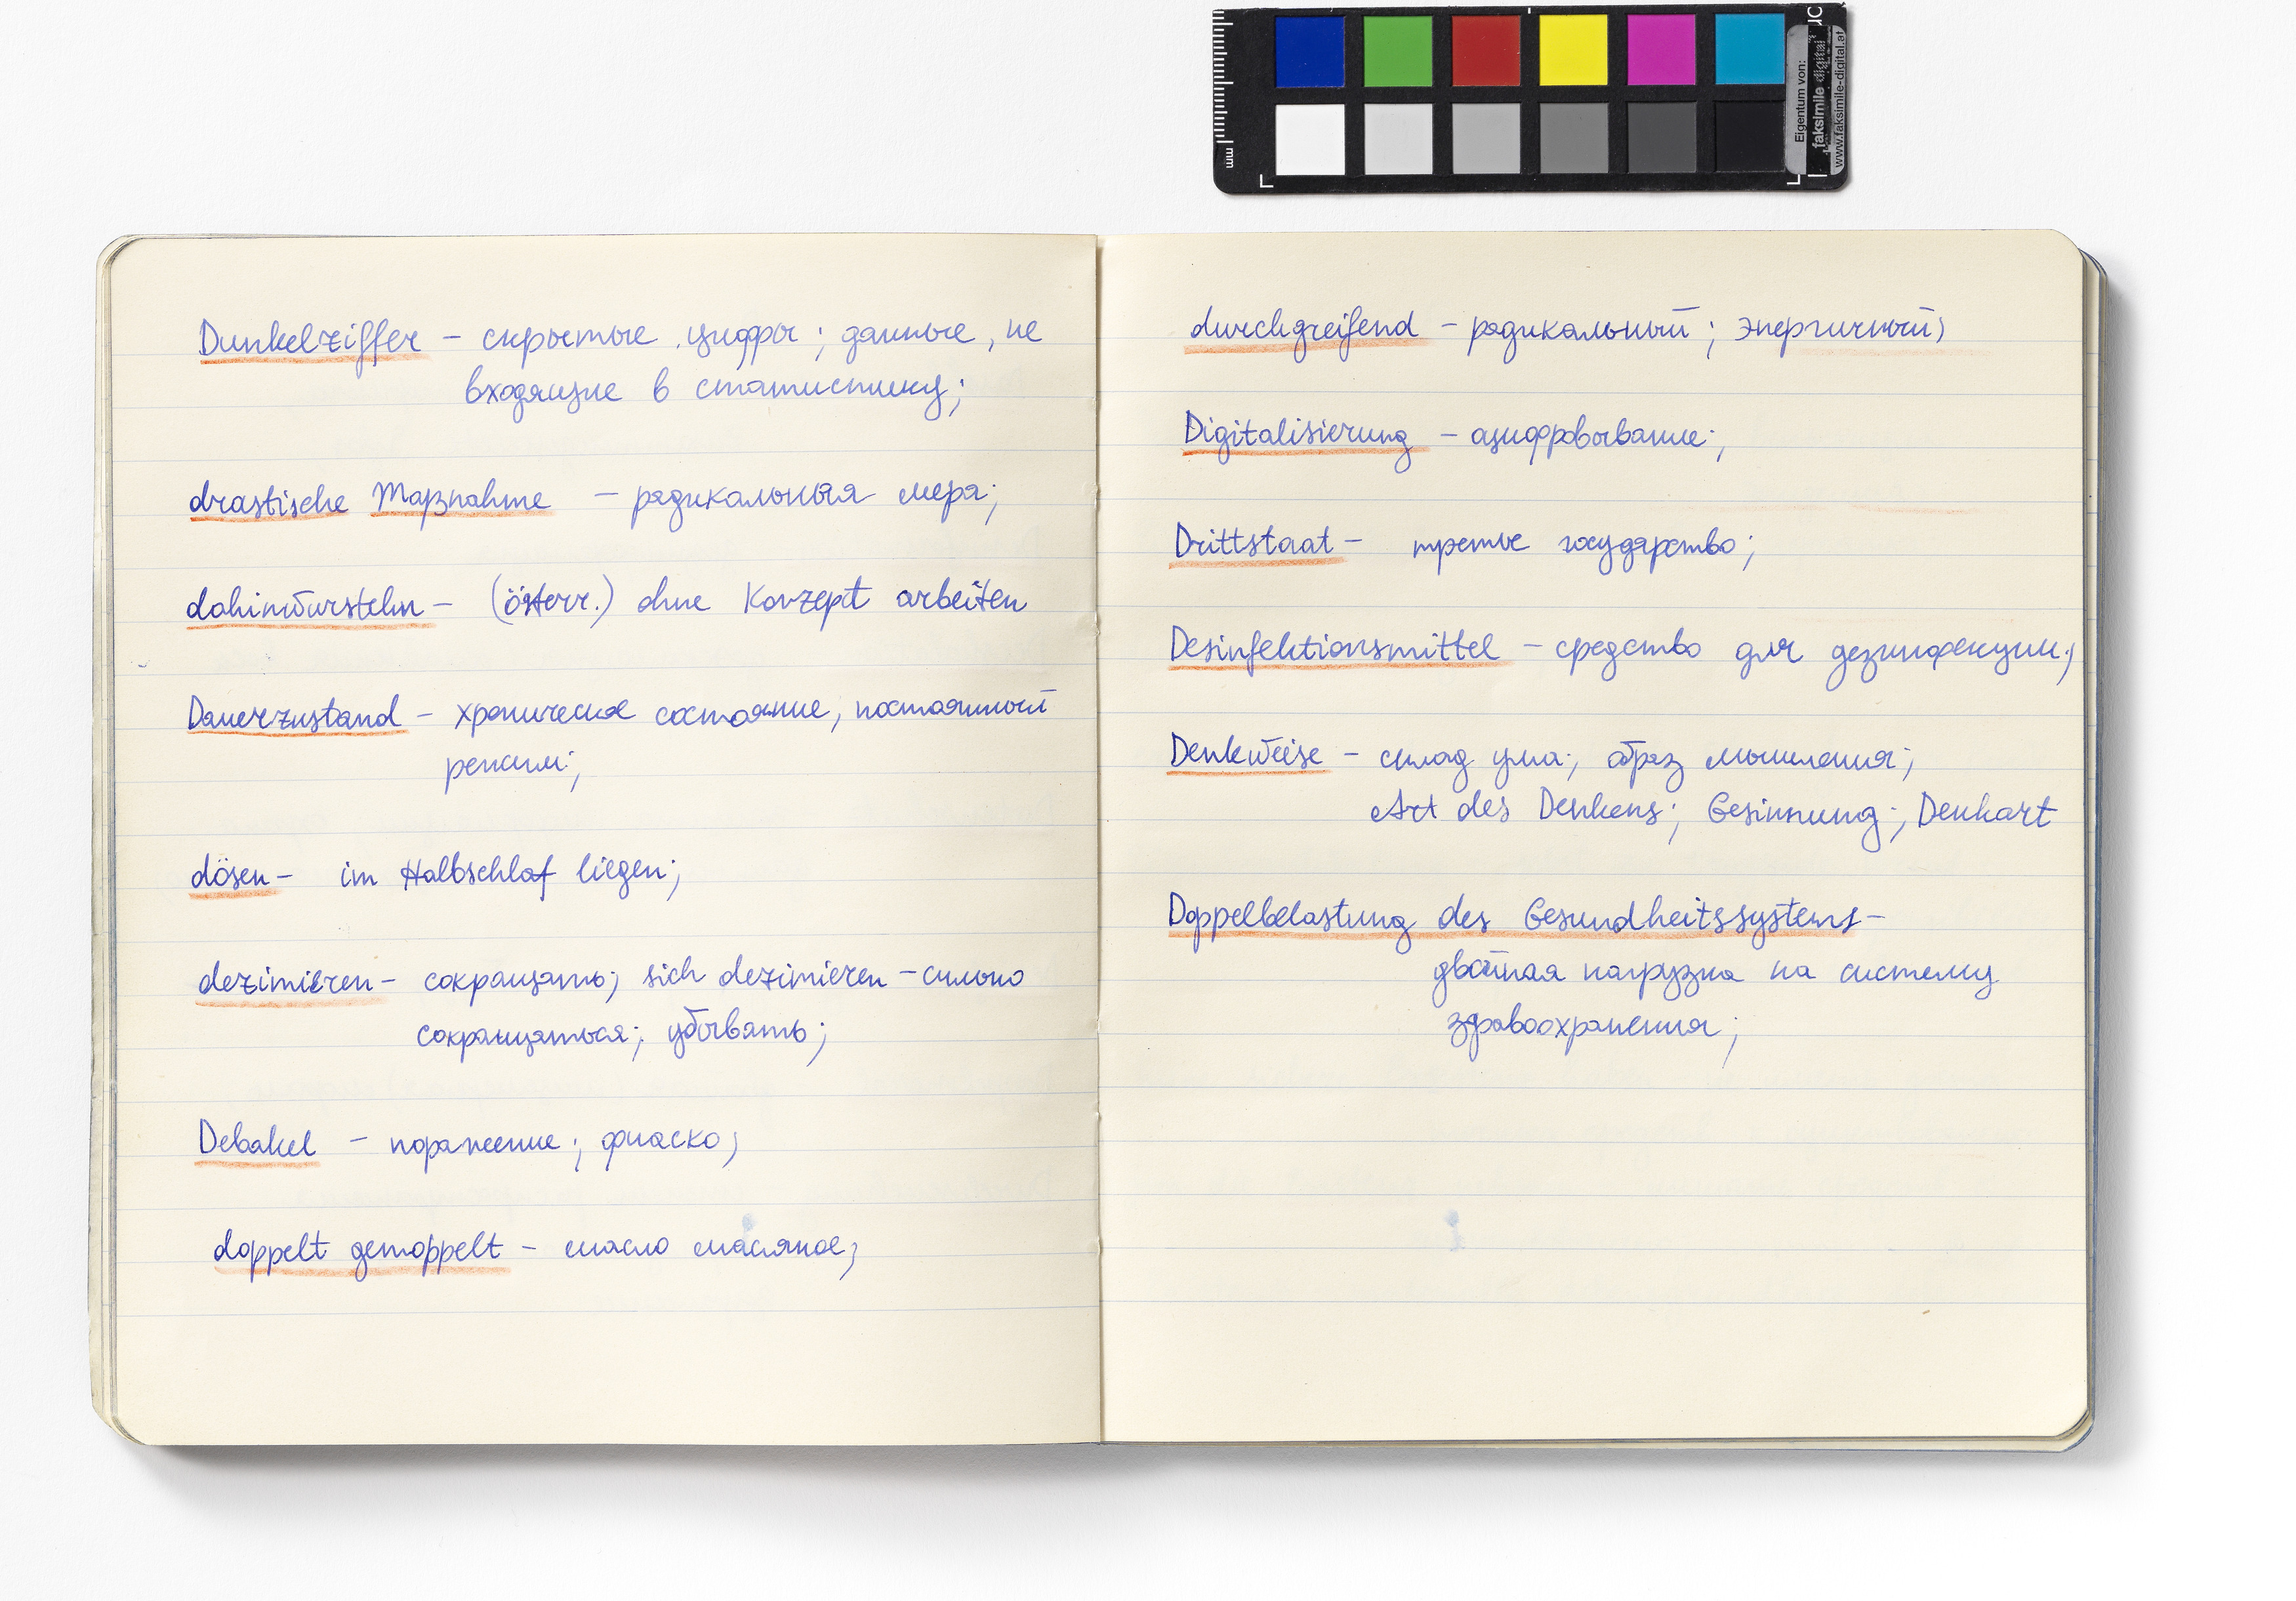 Dunkelziffer – скрытые цифры; данные, не
входящие в статистику;
drastische Maßnahme – радикальная мера;
dahinwursteln – (österr.) ohne Konzept arbeiten
Dauerzustand – хроническое состояние, постоянный
режим;
dösen – im Halbschlaf liegen;
dezimieren – сокращать; sich dezimieren – сильно
сокращаться; убывать;
Debakel – поражение; фиаско;
doppelt gemoppelt – масло масляное;
durchgreifend – радикальный; энергичный;
Digitalisierung – оцифровывание;
Drittstaat – третье государство;
Desinfektionsmittel – средство для дезинфекции;
Denkweise – склад ума; образ мышления;
Art des Denkens; Gesinnung; Denkart
Doppelbelastung des Gesundheitssystems –
двойная нагрузка на систему
здравоохранения;
mm
Eigentum von:
faksimile digital
www.faksimile-digital.at